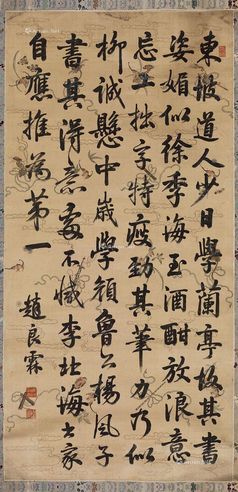 東坡道人少日學蘭亭故其書
姿媚似徐季海至酒酣放浪意
忘工拙字特瘦勁其筆力乃似
柳誠懸中歲學顏魯公楊風子
書其得意處不減李北海家
自應推為第一
趙良霖